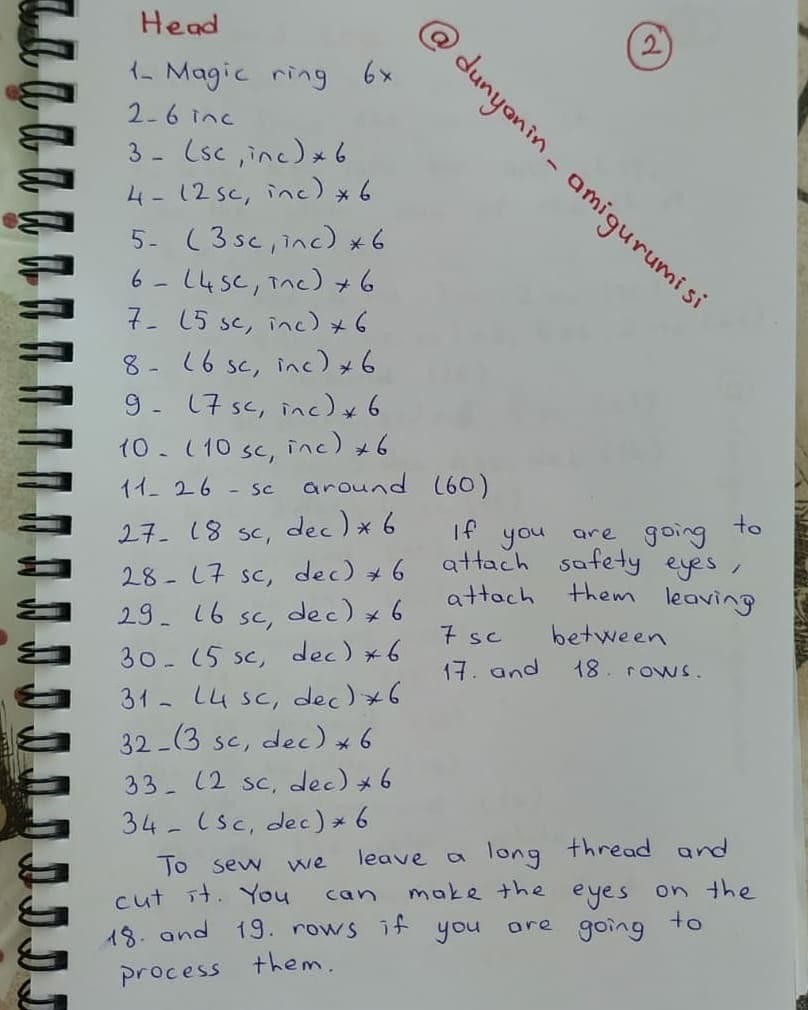 Head
2
@dunyanin_amigurumisi
1- Magic ring 6x
2- 6 inc
3 - (sc, inc) * 6
4 - (2 sc, inc) * 6
5 - (3 sc, inc) * 6
6 - (4 sc, inc) * 6
7 - (5 sc, inc) * 6
8 - (6 sc, inc) * 6
9 - (7 sc, inc) * 6
10 - (10 sc, inc) * 6
11- 26 - sc around (60)
27- (8 sc, dec) * 6
28 - (7 sc, dec) * 6
29 - (6 sc, dec) * 6
30 - (5 sc, dec) * 6
31 - (4 sc, dec) * 6
32 - (3 sc, dec) * 6
33 - (2 sc, dec) * 6
34 - (sc, dec) * 6
If you are going to
attach safety eyes,
attach them leaving
7 sc between
17. and 18. rows.
To sew we leave a long thread and
cut it. You can make the eyes on the
18. and 19. rows if you are going to
process them.